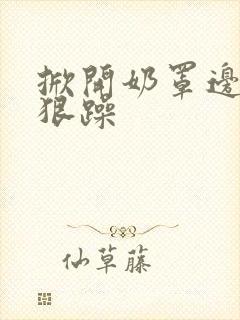 掀開奶罩邊
狠躁
仙草藤